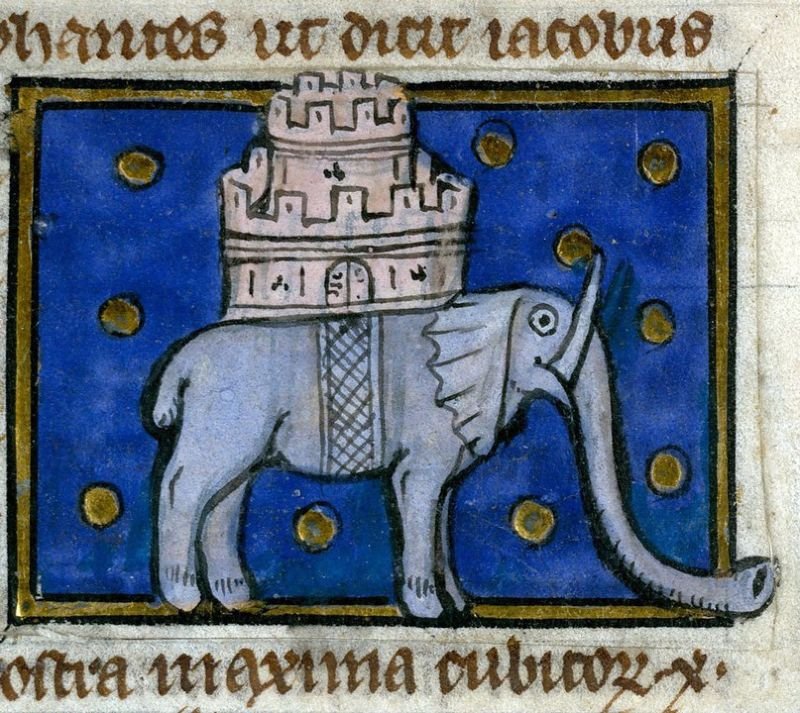 phantes ut dicit iacobus
ostra maxima cubitoꝝ .x.